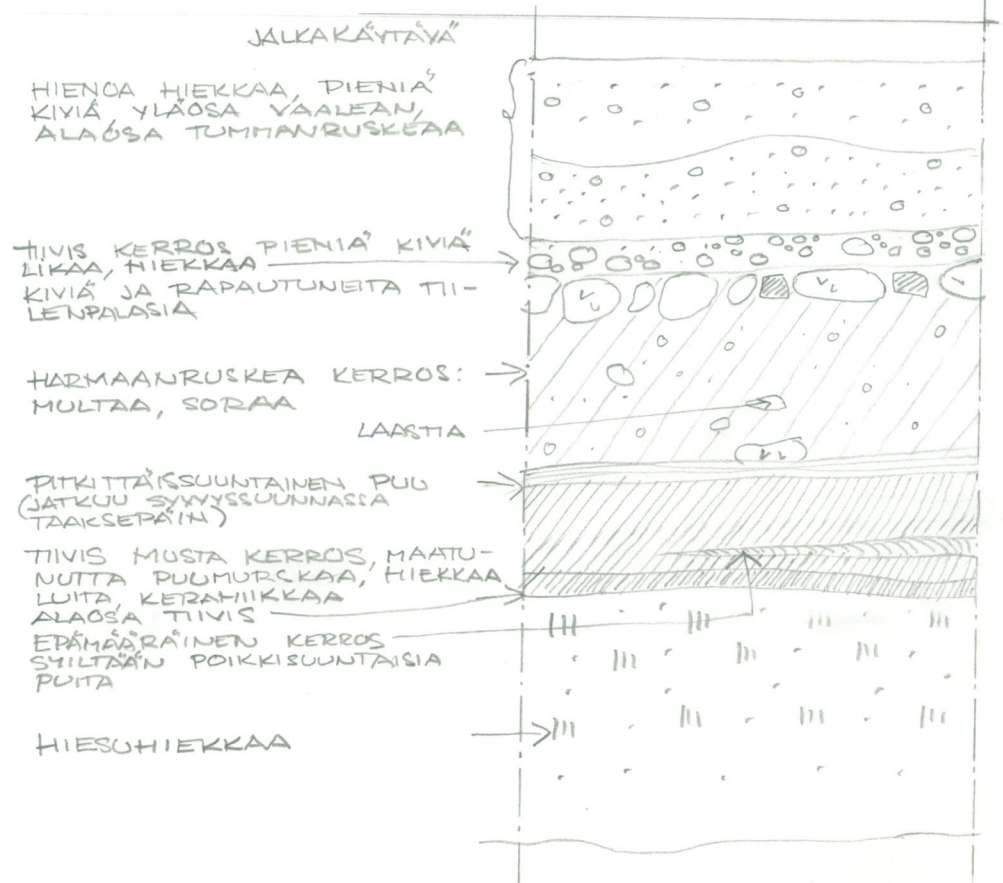 JALKAKÄYTÄVÄ
HIENOA HIEKKAA, PIENIÄ
KIVIÄ, YLÄOSA VAALEAN,
ALAOSA TUMMANRUSKEAA
TIIVIS KERROS PIENIÄ KIVIÄ
LIKAA, HIEKKAA
KIVIÄ JA RAPAUTUNEITA TII-
LENPALASIA
HARMAANRUSKEA KERROS:
MULTAA, SORAA
LAASTIA
PITKITTÄISSUUNTAINEN PUU
(JATKUU SYVYYSSUUNNASSA
TAAKSEPÄIN)
TIIVIS MUSTA KERROS, MAATU-
NUTTA PUUMURSKAA, HIEKKAA
LUITA, KERAMIIKKAA
ALAOSA TIIVIS
EPÄMÄÄRÄINEN KERROS
SYILTÄÄN POIKKISUUNTAISIA
PUITA
HIESUHIEKKAA